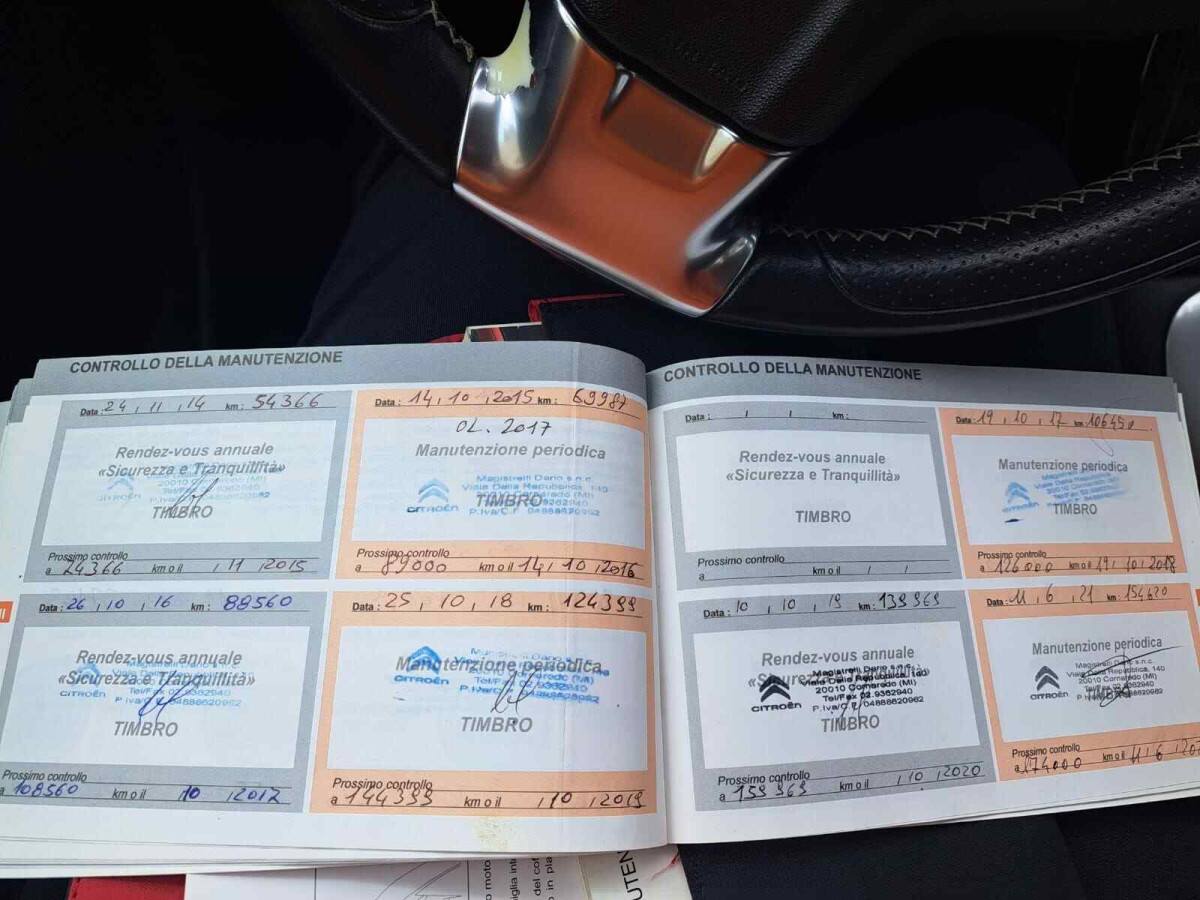 CONTROLLO DELLA MANUTENZIONE
Data: 24, 11, 14 km: 54366
Rendez-vous annuale
«Sicurezza e Tranquillità»
TIMBRO
CITROËN
Prossimo controllo
a 24366 km o il , 11 , 2015
Data: 14, 10, 2015 km: 69987
OL. 2017
Manutenzione periodica
Magistrelli Dario s.n.c.
Viale Della Repubblica, 140
20010 Cornaredo (MI)
Tel/Fax 02.9362940
P.Iva/C.F. 04888620962
CITROËN
TIMBRO
Prossimo controllo
a 89000 km o il 14, 10, 2016
Data: 26, 10, 16 km: 88560
Rendez-vous annuale
«Sicurezza e Tranquillità»
Magistrelli Dario s.n.c.
20010 Cornaredo (MI)
Tel/Fax 02.9362940
P.Iva/C.F. 04888620962
CITROËN
TIMBRO
Prossimo controllo
a 108560 km o il , 10 , 2017
Data: 25, 10, 18 km: 124399
Manutenzione periodica
CITROËN
TIMBRO
Prossimo controllo
a 144399 km o il , 10 , 2019
CONTROLLO DELLA MANUTENZIONE
Data: , , km:
Rendez-vous annuale
«Sicurezza e Tranquillità»
TIMBRO
Prossimo controllo
a km o il , ,
Data: 19, 10, 17 km: 106450
Manutenzione periodica
CITROËN
TIMBRO
Prossimo controllo
a 126000 km o il 19, 10, 2018
Data: 10, 10, 19 km: 139969
Rendez-vous annuale
«Sicurezza e Tranquillità»
Magistrelli Dario s.n.c.
Viale Della Repubblica, 140
20010 Cornaredo (MI)
Tel/Fax 02.9362940
P.Iva/C.F. 04888620962
CITROËN
TIMBRO
Prossimo controllo
a 159969 km o il , 10 , 2020
Data: 11, 6, 21 km: 154620
Manutenzione periodica
Magistrelli Dario s.n.c.
Viale Della Repubblica, 140
20010 Cornaredo (MI)
Tel/Fax 02.9362940
P.Iva/C.F. 04888620962
CITROËN
Prossimo controllo
a 174000 km o il 11, 6,